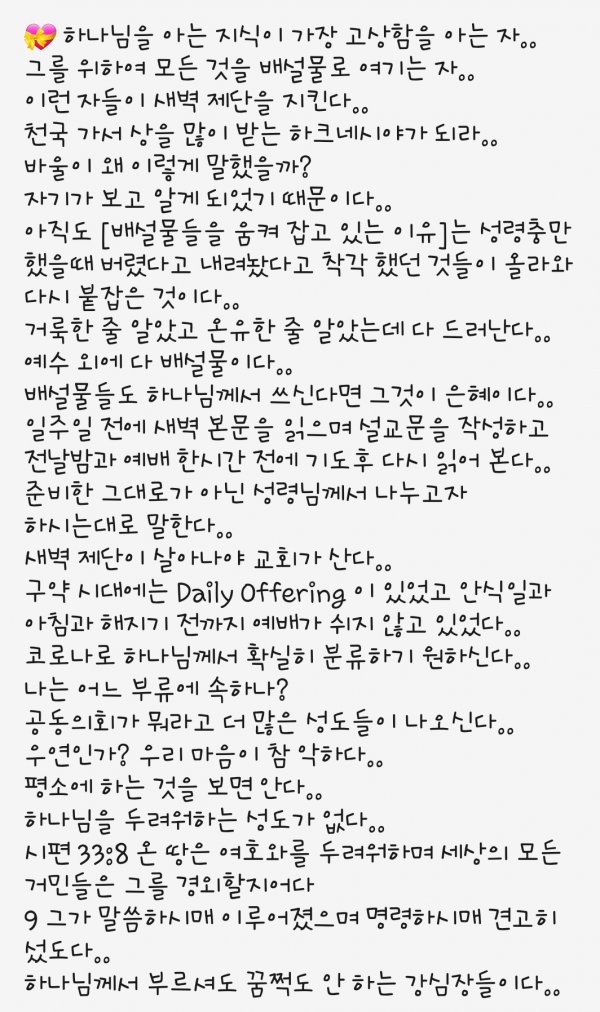 💝 하나님을 아는 지식이 가장 고상함을 아는 자..
그를 위하여 모든 것을 배설물로 여기는 자..
이런 자들이 새벽 제단을 지킨다..
천국 가서 상을 많이 받는 하크네시야가 되라..
바울이 왜 이렇게 말했을까?
자기가 보고 알게 되었기 때문이다..
아직도 [배설물들을 움켜 잡고 있는 이유]는 성령충만
했을때 버렸다고 내려놨다고 착각 했던 것들이 올라와
다시 붙잡은 것이다..
거룩한 줄 알았고 온유한 줄 알았는데 다 드러난다..
예수 외에 다 배설물이다..
배설물들도 하나님께서 쓰신다면 그것이 은혜이다..
일주일 전에 새벽 본문을 읽으며 설교문을 작성하고
전날밤과 예배 한시간 전에 기도후 다시 읽어 본다..
준비한 그대로가 아닌 성령님께서 나누고자
하시는대로 말한다..
새벽 제단이 살아나야 교회가 산다..
구약 시대에는 Daily Offering 이 있었고 안식일과
아침과 해지기 전까지 예배가 쉬지 않고 있었다..
코로나로 하나님께서 확실히 분류하기 원하신다..
나는 어느 부류에 속하나?
공동의회가 뭐라고 더 많은 성도들이 나오신다..
우연인가? 우리 마음이 참 악하다..
평소에 하는 것을 보면 안다..
하나님을 두려워하는 성도가 없다..
시편 33:8 온 땅은 여호와를 두려워하며 세상의 모든
거민들은 그를 경외할지어다
9 그가 말씀하시매 이루어졌으며 명령하시매 견고히
섰도다..
하나님께서 부르셔도 꿈쩍도 안 하는 강심장들이다..